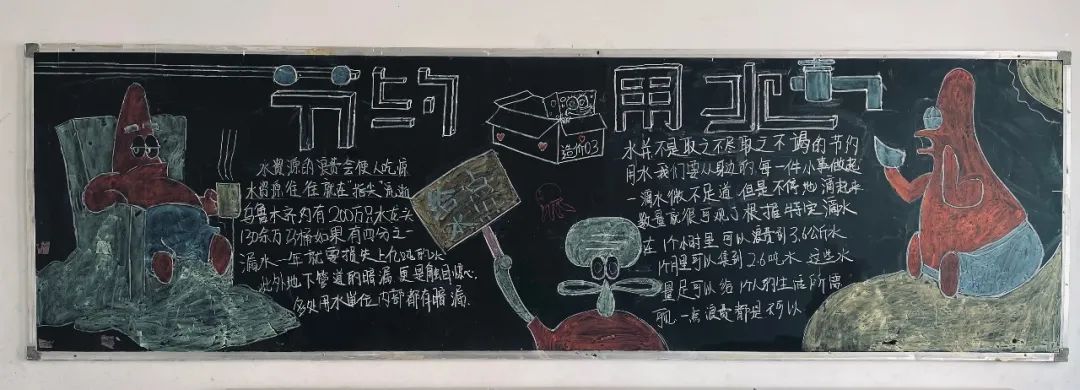 节约用水
造价03
节点
水
水资源的浪费会使人吃惊
水资源往往就在指尖流逝
乌鲁木齐约有200万只水龙头
130余万马桶如果有四分之一
漏水一年就要损失上亿吨的水
此外地下管道的暗漏更是触目惊心
多处用水单位内部都有暗漏
水并不是取之不尽取之不竭的节约
用水我们要从身边的每一件小事做起
一滴水微不足道但是不停地滴起来
数量就很可观了根据特定滴水
在1个小时里可以浪费到3.6公斤水
1个月里可以集到2.6吨水这些水
量足可以给1个人的生活所需
可见一点浪费都是不可以